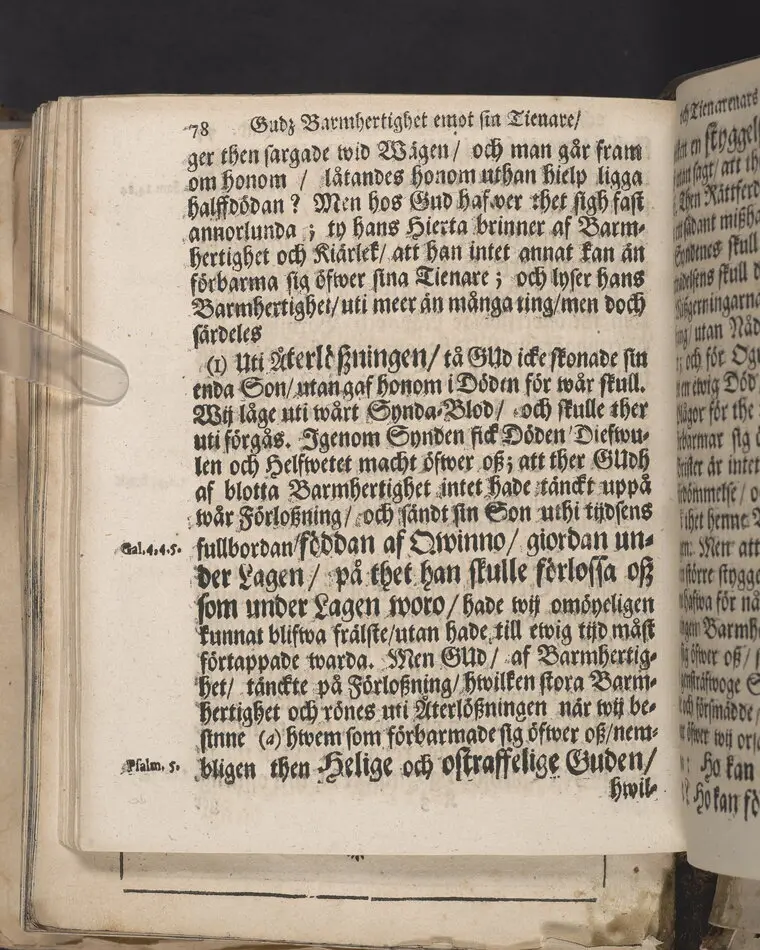 78 Gudz Barmhertighet emot sin Tienare/
ger then sargade wid Wägen/ och man går fram
om honom / låtandes honom uthan hielp ligga
halffdödan? Men hos Gud hafwer thet sigh fast
annorlunda; ty hans Hierta brinner af Barm-
hertighet och Kiärlek/ att han intet annat kan än
förbarma sig öfwer sina Tienare; och lyser hans
Barmhertighet/ uti meer än många ting/ men doch
särdeles
(1) Uti Återlößningen/ tå GUd icke skonade sin
enda Son/ utan gaf honom i Döden för wår skull.
Wij låge uti wårt Synda-Blod/ och skulle ther
uti förgås. Igenom Synden fick Döden/ Diefwu-
len och Helfwetet macht öfwer oß; att ther GUdh
af blotta Barmhertighet intet hade tänckt uppå
wår Förloßning/ och sändt sin Son uthi tijdsens
Gal.4.4.5. fullbordan/ föddan af Qwinno/ giordan un-
der Lagen/ på thet han skulle förlossa oß
som under Lagen woro/ hade wij omöyeligen
kunnat blifwa frälste/ utan hade till ewig tijd måst
förtappade warda. Men GUd/ af Barmhertig-
het/ tänckte på Förloßning/ hwilken stora Barm-
hertighet och rönes uti Återlößningen när wij be-
sinne (a) hwem som förbarmade sig öfwer oß/ nem-
Psalm. 5. bligen then Helige och ostraffelige Guden/
hwil-